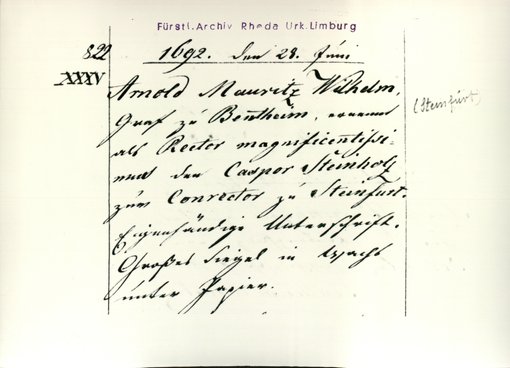 Fürstl. Archiv Rheda Urk. Limburg
822
XXXV
1692. den 28. Juni
Arnold Mauritz Wilhelm,
Graf zu Bentheim, ernennt
als Rector magnificentissi-
mus den Caspar Steinholz
zum Conrector zu Steinfurt.
(Steinfurt)
Eigenhändige Unterschrift.
Großes Siegel in Wachs
unter Papier.